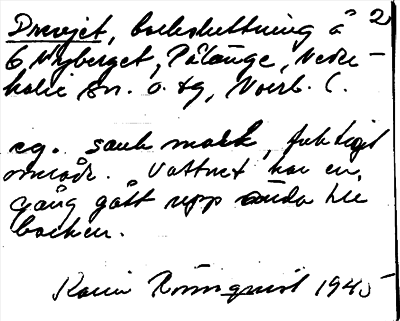 Drevjet, backsluttning å 2
G Nyberget, Pålänge, Neder-
kalix sn. o. tg, Norrb. l.
eg. sank mark, fuktigt
område. Vattnet har en
gång gått upp ända till
backen.
Karin Rönnquist 1945